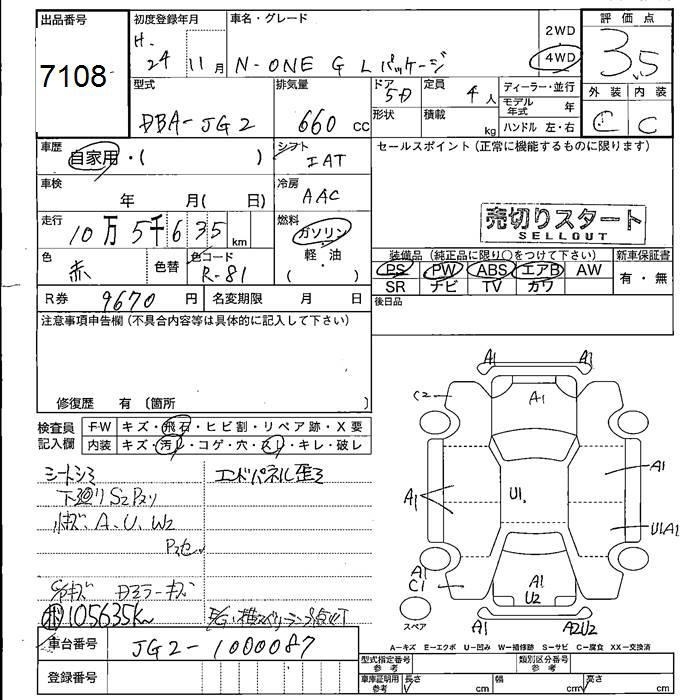 出品番号
7108
初度登録年月
H. 24 11月
車名・グレード
N-ONE G Lパッケージ
2WD
4WD
評価点
3.5
外装 内装
C C
型式
DBA-JG2
排気量
660 cc
ドア
5D
形状
定員
4人
積載
kg
ディーラー・並行
モデル年式 年
ハンドル 左・右
車歴
自家用・( )
シフト
IAT
セールスポイント(正常に機能するものに限ります)
車検
年 月( 日)
冷房
AAC
売切りスタート
SELLOUT
走行
10万5千635km
燃料
ガソリン
軽・油
( )
装備品(純正品に限り○をつけて下さい)
PS PW ABS エアB AW
SR ナビ TV カワ
新車保証書
有・無
色
赤
色替
色コード
R-81
R券 9670円
名変期限 月 日
後日品
注意事項申告欄(不具合内容等は具体的に記入して下さい)
修復歴 有〔箇所 〕
検査員記入欄
F・W キズ・飛石・ヒビ割・リペア跡・X要
内装 キズ・汚レ・コゲ・穴・スレ・キレ・破レ
シートシミ
エンドパネル歪ミ
下廻りS2 Pヌリ
小キズ、A、U、W2
Dミラーキズ
105635K
車台番号
JG2-1000087
登録番号
A1 A1
C2
A1
A1
A1
U1
U1A1
A1
C1
A1
U2
スペア
A1 A2U2
A-キズ E-エクボ U-凹み W-補修跡 S-サビ C-腐食 XX-交換済
型式指定番号
参考
類別区分番号
参考
車庫証明用
参考
長さ cm
幅 cm
高さ cm